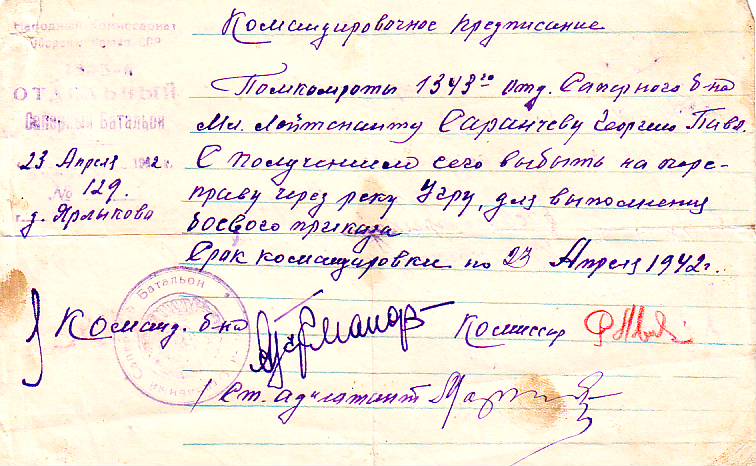 Народный Комиссариат
Обороны Союза ССР
1343-й
ОТДЕЛЬНЫЙ
Саперный Батальон
23 Апреля 1942 г.
№ 129.
д. Ярлыково
Командировочное предписание
Помкомроты 1343го отд. Саперного б-на
Мл. Лейтенанту Саранчеву Георгию Павл.
С получением сего выбыть на пере-
праву через реку Угру, для выполнения
боевого приказа
Срок командировки по 23 Апреля 1942 г.
Команд. б-на
Комиссар
Ст. адъютант
Батальон